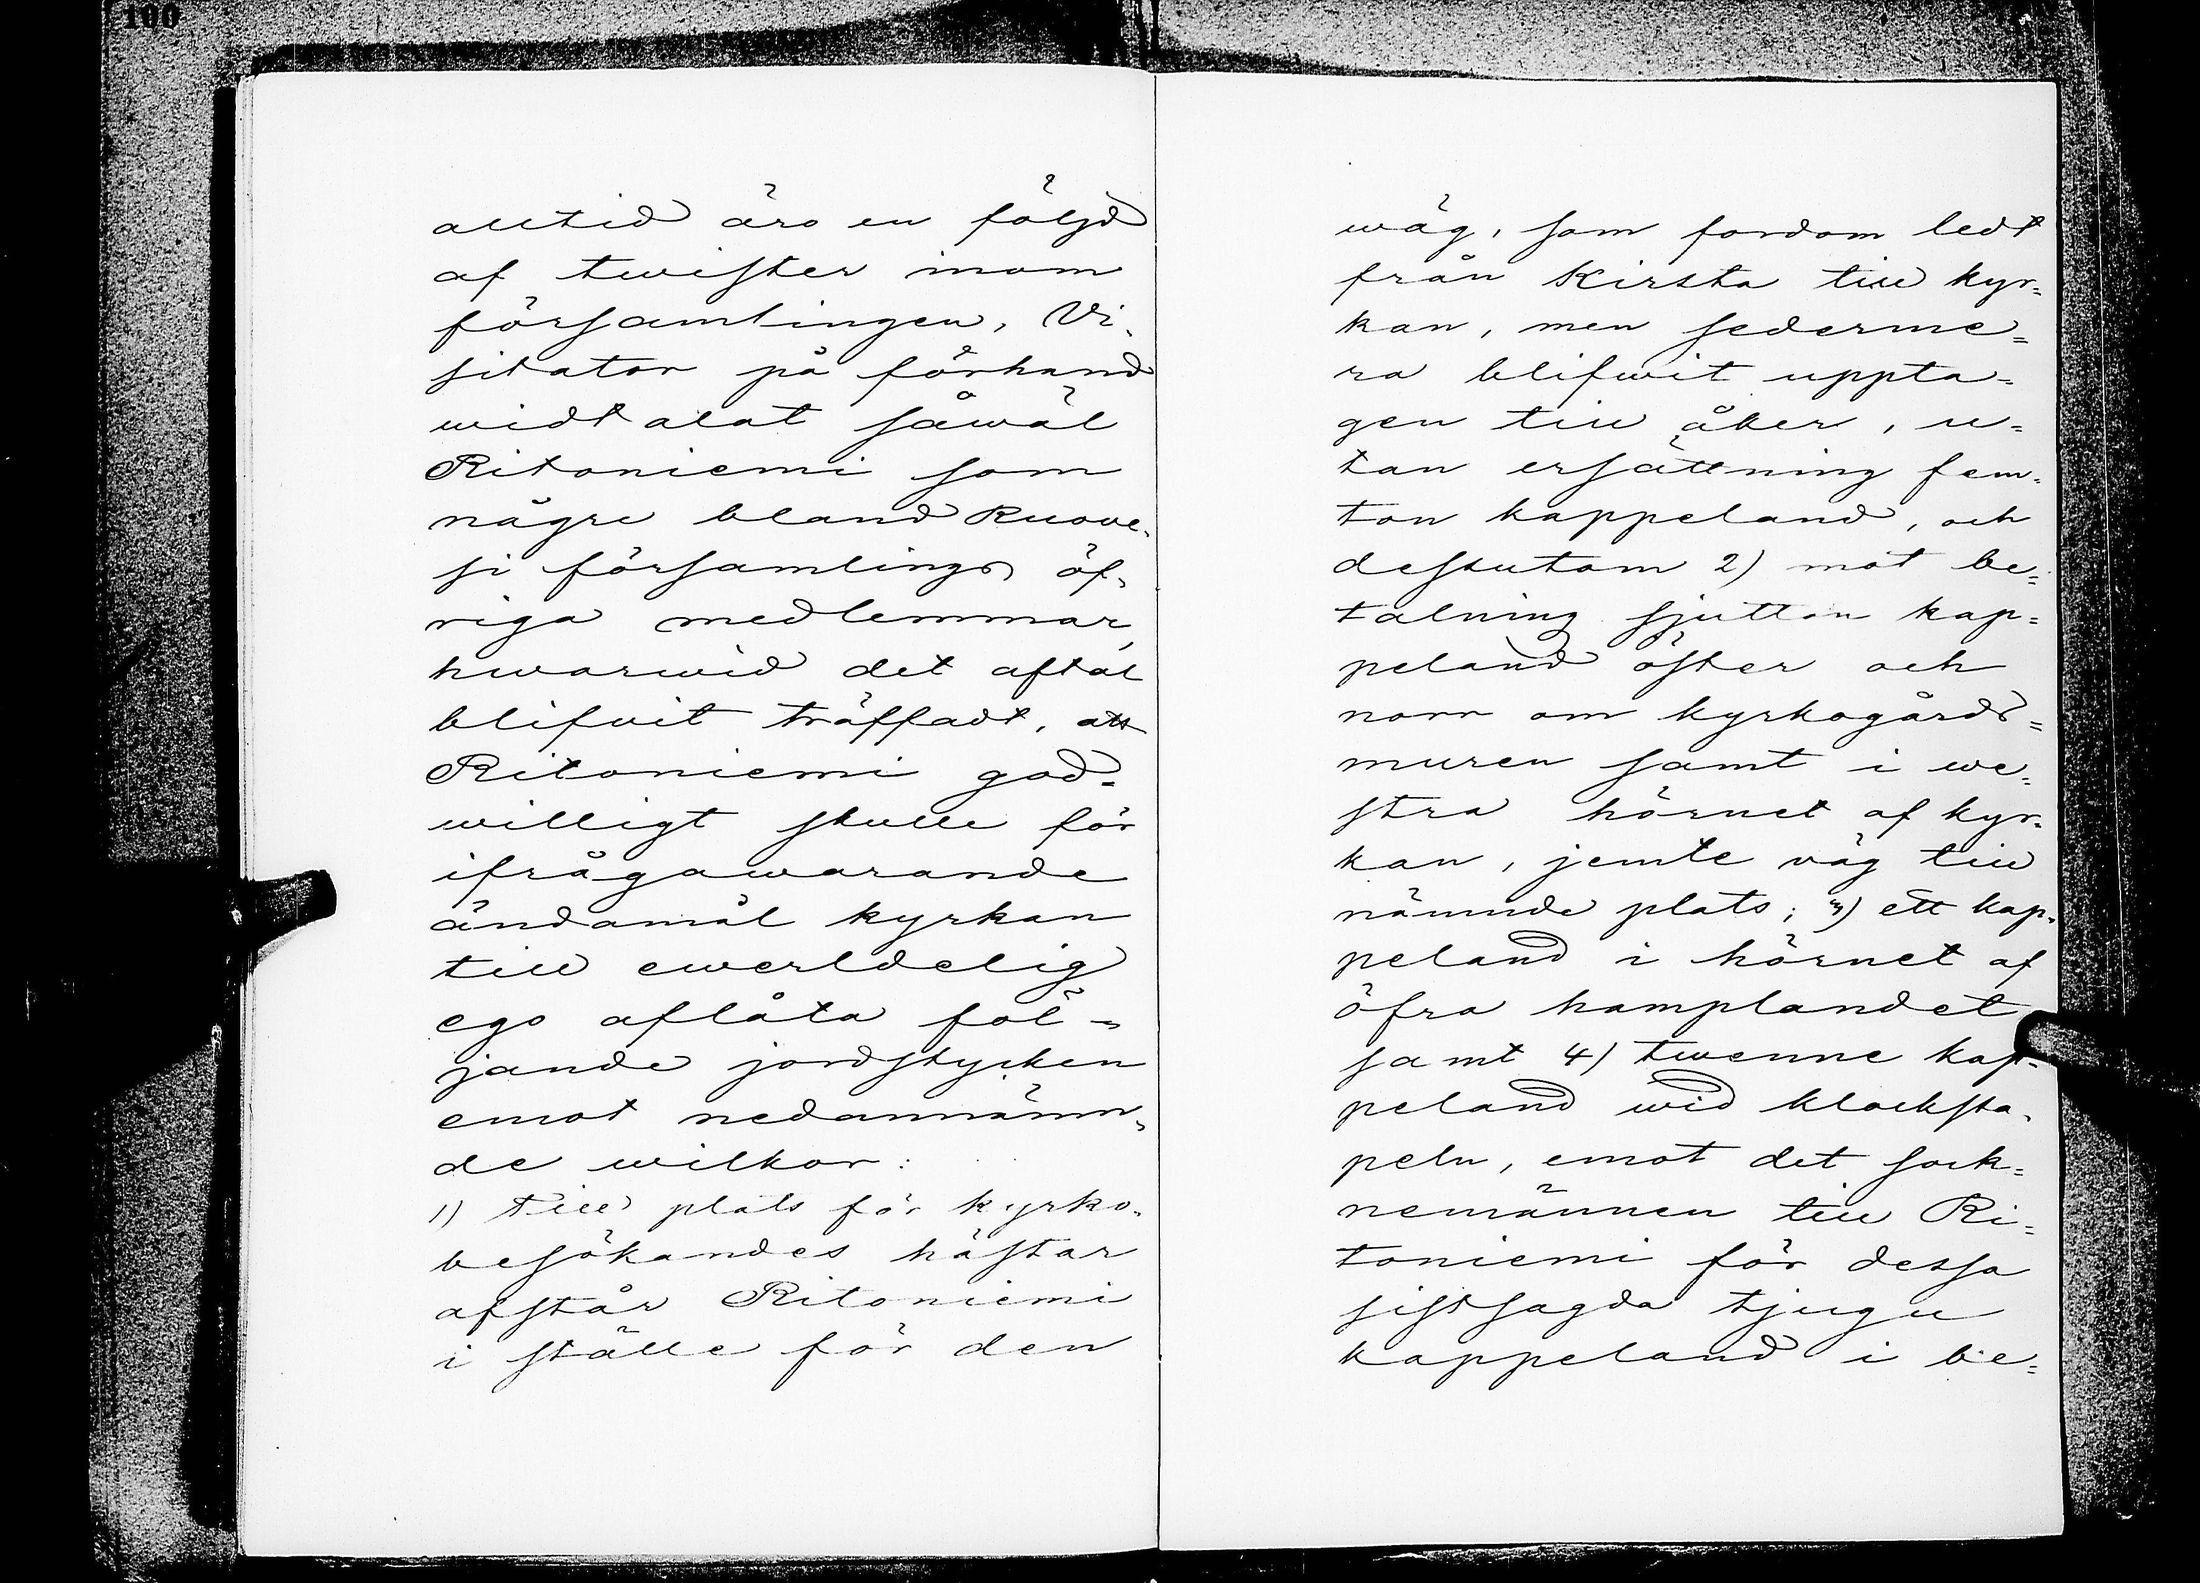 100
alltid äro en följd
af twister inom
församlingen, Vi-
sitator på förhand
widtalat såwäl
Ritoniemi som
någre bland Ruove-
si församlings öf-
riga medlemmar,
hwarwid det aftal
blifvit träffadt, att
Ritoniemi god-
willigt skulle för
ifrågawarande
ändamål kyrkan
till ewerldelig
ego aflåta föl-
jande jordstycken
emot nedannämn-
de wilkor:
1) till plats för kyrko-
besökandes hästar
afstår Ritoniemi
i ställe för den
wäg, som fordom ledt
från Kirsta till kyr-
kan, men sederme=
ra blifwit uppta=
gen till åker, u=
tan ersättning fem-
ton kappeland, och
dessutom 2) mot be=
talning sjutton kap=
peland öster och
norr om kyrkogårds=
muren samt i we=
stra hörnet af kyr-
kan, jemte väg till
nämnde plats; 3) ett kap-
peland i hörnet af
öfra hamplandet
samt 4) twenne kap-
peland wid klocksta-
peln, emot det sock=
nemännen till Ri=
toniemi för dessa
sistsagda tjugu
kappeland i be=